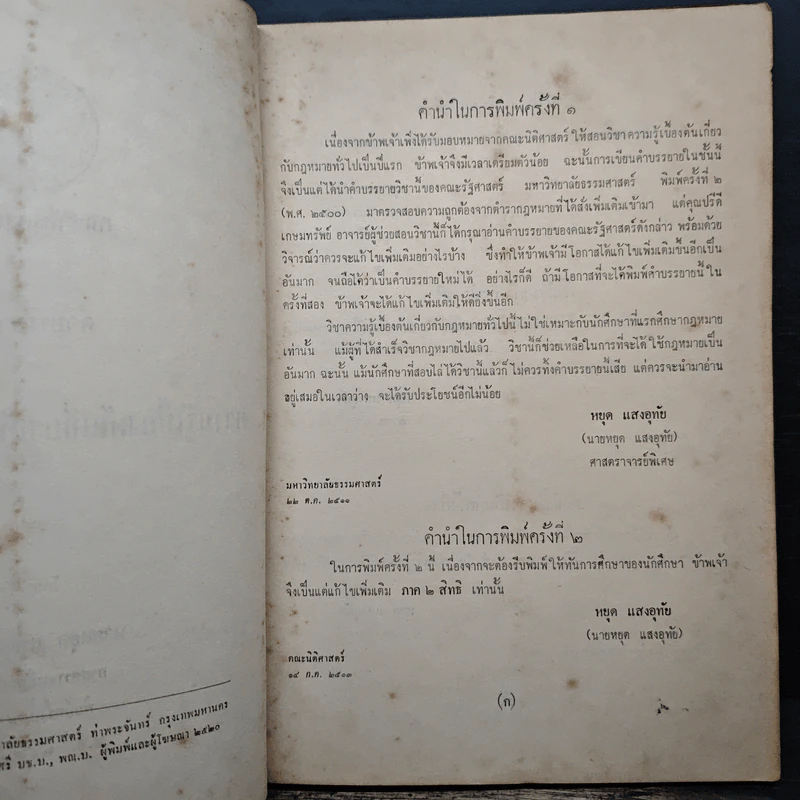 คำนำในการพิมพ์ครั้งที่ ๑
เนื่องจากข้าพเจ้าเพิ่งได้รับมอบหมายจากคณะนิติศาสตร์ ให้สอนวิชาความรู้เบื้องต้นเกี่ยว
กับกฎหมายทั่วไปเป็นปีแรก ข้าพเจ้าจึงมีเวลาเตรียมตัวน้อย ฉะนั้นการเขียนคำบรรยายในชั้นนี้
จึงเป็นแต่ได้นำคำบรรยายวิชานี้ของคณะรัฐศาสตร์ มหาวิทยาลัยธรรมศาสตร์ พิมพ์ครั้งที่ ๒
(พ.ศ. ๒๕๐๐) มาตรวจสอบความถูกต้องจากตำรากฎหมายที่ได้สั่งเพิ่มเติมเข้ามา แต่คุณปรีดี
เกษมทรัพย์ อาจารย์ผู้ช่วยสอนวิชานี้ก็ได้กรุณาอ่านคำบรรยายของคณะรัฐศาสตร์ดังกล่าว พร้อมด้วย
วิจารณ์ว่าควรจะแก้ไขเพิ่มเติมอย่างไรบ้าง ซึ่งทำให้ข้าพเจ้ามีโอกาสได้แก้ไขเพิ่มเติมขึ้นอีกเป็น
อันมาก จนถือได้ว่าเป็นคำบรรยายใหม่ได้ อย่างไรก็ดี ถ้ามีโอกาสที่จะได้พิมพ์คำบรรยายนี้ใน
ครั้งที่สอง ข้าพเจ้าจะได้แก้ไขเพิ่มเติมให้ดียิ่งขึ้นอีก
วิชาความรู้เบื้องต้นเกี่ยวกับกฎหมายทั่วไปนี้ไม่ใช่เหมาะกับนักศึกษาที่แรกศึกษากฎหมาย
เท่านั้น แม้ผู้ที่ได้สำเร็จวิชากฎหมายไปแล้ว วิชานี้ก็ช่วยเหลือในการที่จะได้ใช้กฎหมายเป็น
อันมาก ฉะนั้น แม้นักศึกษาที่สอบไล่ได้วิชานี้แล้วก็ไม่ควรทิ้งคำบรรยายนี้เสีย แต่ควรจะนำมาอ่าน
อยู่เสมอในเวลาว่าง จะได้รับประโยชน์อีกไม่น้อย
หยุด แสงอุทัย
(นายหยุด แสงอุทัย)
ศาสตราจารย์พิเศษ
มหาวิทยาลัยธรรมศาสตร์
๒๒ ต.ค. ๒๕๑๑
คำนำในการพิมพ์ครั้งที่ ๒
ในการพิมพ์ครั้งที่ ๒ นี้ เนื่องจากจะต้องรีบพิมพ์ให้ทันการศึกษาของนักศึกษา ข้าพเจ้า
จึงเป็นแต่แก้ไขเพิ่มเติม ภาค ๒ สิทธิ เท่านั้น
หยุด แสงอุทัย
(นายหยุด แสงอุทัย)
คณะนิติศาสตร์
๑๔ ก.ค. ๒๕๑๓
(ก)
าลัยธรรมศาสตร์ ท่าพระจันทร์ กรุงเทพมหานคร
รี บช.บ., พณ.บ. ผู้พิมพ์และผู้โฆษณา ๒๕๒๐